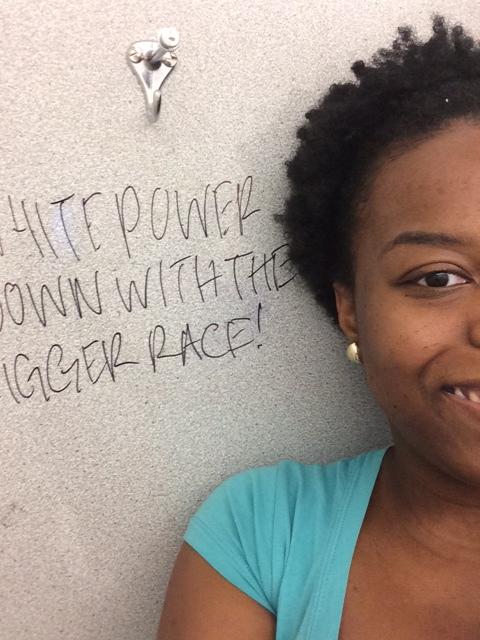 HITE POWER
DOWN WITH THE
IGGER RACE!